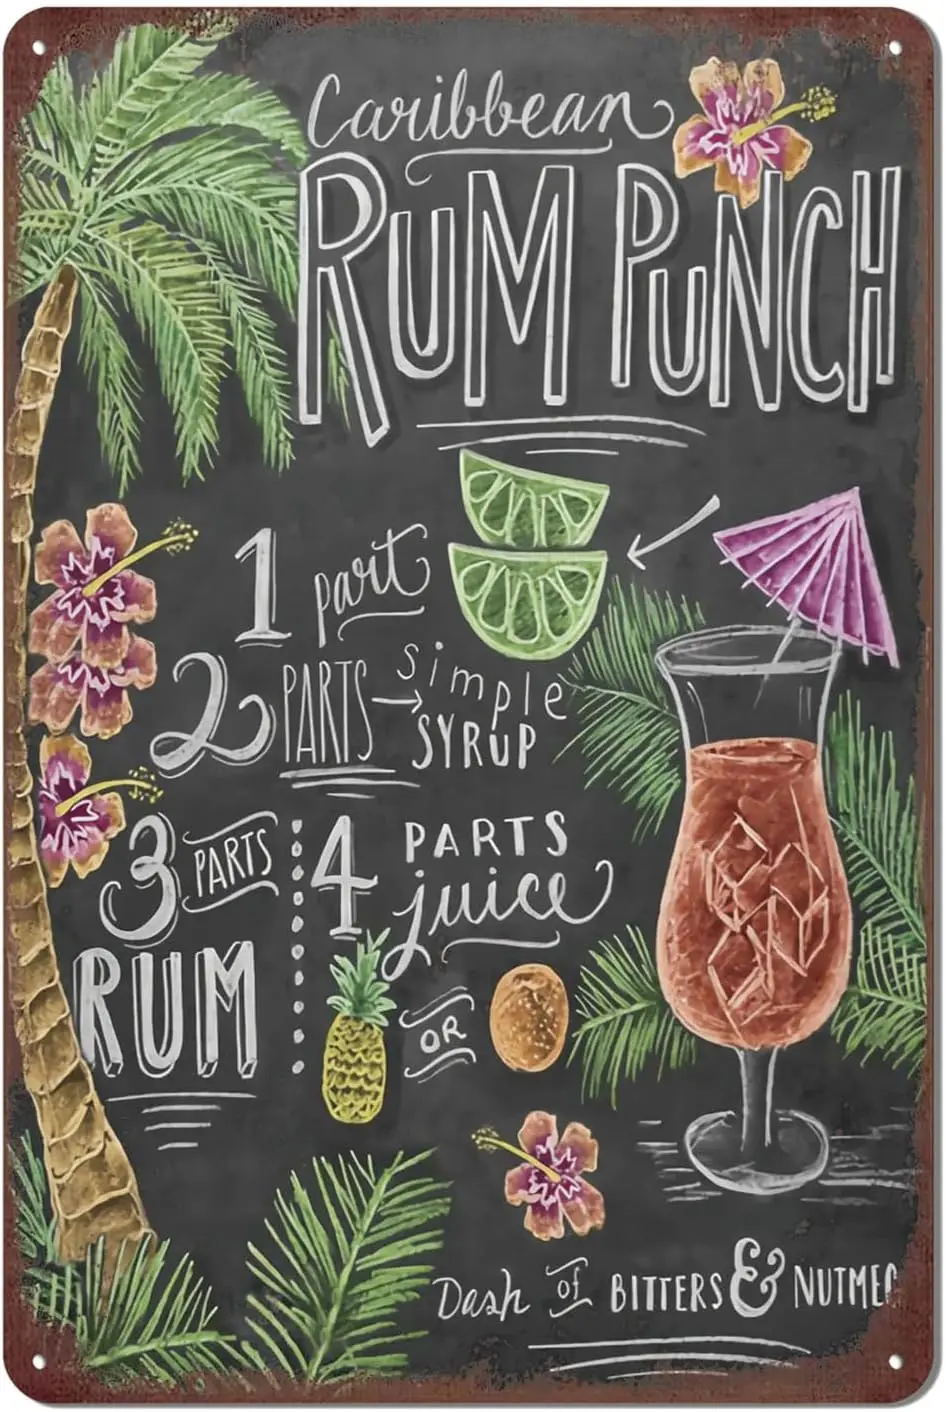 Caribbean
RUM PUNCH
1 part
2 PARTS → simple
SYRUP
3 PARTS
RUM
4 PARTS
juice
OR
Dash of BITTERS & NUTMEG